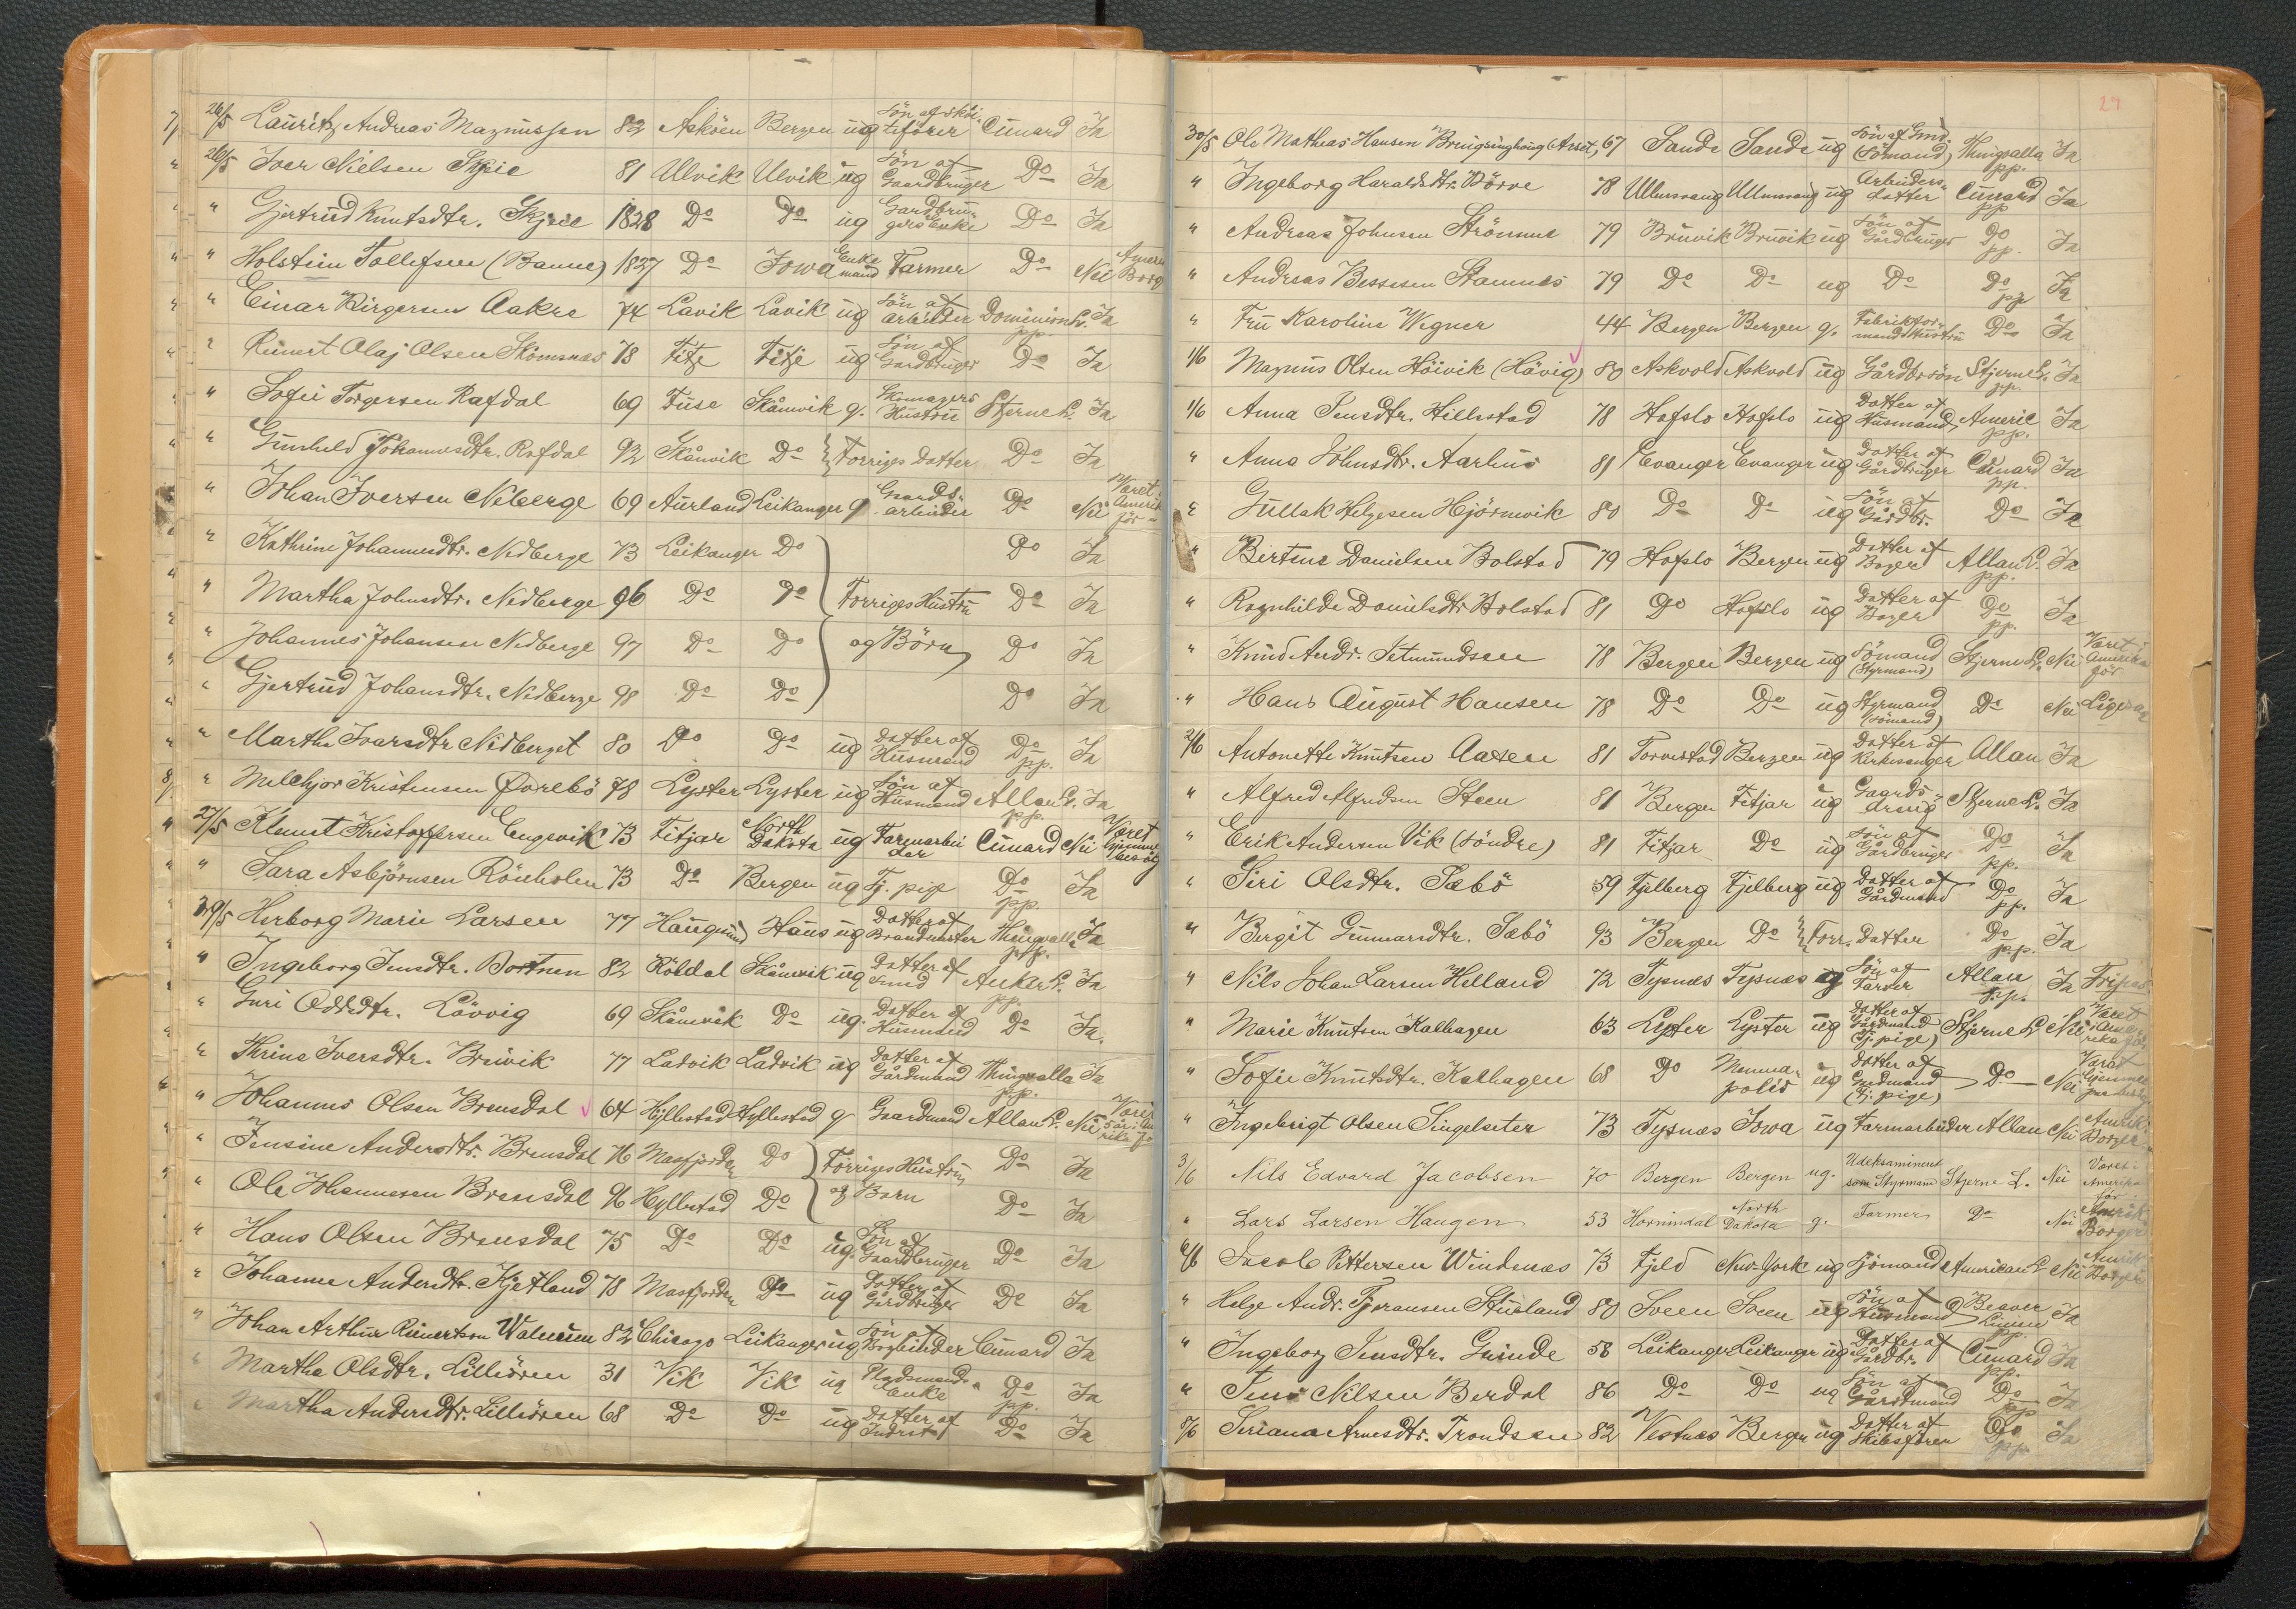 7/ 26/5 Lauritz Andreas Magnussen 82 Askøen Bergen ug Søn af skibsfører Cunard Ja
" 26/5 Iver Nielsen Skjeie 81 Ulvik Ulvik ug Søn af Gaardbruger Do Ja
" " Gjertrud Knutsdtr. Skjeie 1828 Do Do ug Gardbrugersenke Do Ja
" " Holstein Tollefsen (Banne) 1827 Do Iowa Enkemand Farmer Do Nei Amerik Borg
" " Einar Birgersen Aakre 74 Lavik Lavik ug Søn af arbeider Dominion L. pp. Ja
" " Reinert Olaj Olsen Skomsnæs 78 Fitje Fitje ug Søn af Gardbruger Do Ja
" " Sofie Torgersen Rafdal 69 Fuse Skånvik g. Skomagers Hustru Stjerne L. Ja
" " Gunhild Johannesdtr. Rafdal 92 Skånvik Do Forriges Datter Do Ja
" " Johan Iversen Neberge 69 Aurland Leikanger g. Gaardsarbeider Do Nei Været i Amerik før
" " Kathrine Johannesdtr. Nedberge 73 Leikanger Do Do Ja
" " Martha Johnsdtr. Nedberge 96 Do Do Forriges Hustru Do Ja
" " Johannes Johansen Nedberge 97 Do Do og Børn Do Ja
" " Gjertrud Johansdtr. Nedberge 98 Do Do Do Ja
" " Martha Ivarsdtr Nedberget 80 Do Do ug Datter af Husmand Do pp. Ja
8/ " Melchjor Kristensen Øvrebö 78 Lyster Lyster ug Søn af Husmand Allan L. pp. Ja
" 27/5 Klemet Kristoffersen Engevik 73 Fitjar North Dakota ug Farmarbeider Cunard Nei Været hjemme besøg
" " Sara Asbjørnsen Rönholen 73 Do Bergen ug Tj. pige Do pp. Ja
" 29/5 Herborg Marie Larsen 77 Haugesund Haus ug Datter af Brandmester Thingvalla pp. Ja
" " Ingeborg Jensdtr. Bortnen 82 Röldal Skånevik ug Datter af Smed Anker L. pp. Ja
" " Guri Oddsdtr. Lövvig 69 Skånevik Do ug. Datter af Husmand Do Ja.
" " Thrine Iversdtr. Breivik 77 Ladvik Ladvik ug Datter af Gårdmand Thingvalla pp. Ja
" " Johannes Olsen Brensdal 64 Hyllestad Hyllestad g Gaardmand Allan L. Nei
" " Jensine Andersdtr. Brensdal 76 Masfjorden Do Forriges Hustru Do Ja
" " Ole Johannesen Brensdal 96 Hyllestad Do og Barn Do Ja
" " Hans Olsen Brensdal 75 Do Do ug. Søn af Gaardbruger Do Ja
" " Johanne Andersdtr. Kjetland 78 Masfjorden Do ug Datter af Gårdbruger Do Ja
" " Johan Arthur Reinertson Walnum 82 Chicago Leikanger ug Søn af Bogbinder Cunard Ja
" " Martha Olsdtr. Lilleören 31 Vik Vik ug Pladsmands Enke Do pp. Ja
" " Martha Andersdtr. Lilleören 68 Do Do ug Datter af Inderst Do Ja
27
30/5 Ole Matheas Hansen Bringsinghaug (Arset) 67 Sande Sande ug Søn af Gmd. (Sømand) Thingvalla pp. Ja
" Ingeborg Haraldsdtr. Börve 78 Ullensvang Ullensvang ug Arbeidersdatter Cunard pp Ja
" Andreas Johnsen Strömme 79 Bruvik Bruvik ug Søn af Gårdbruger Do pp. Ja
" Andreas Bessesen Stamnes 79 Do Do ug Do Do pp Ja
" Fru Karoline Wegner 44 Bergen Bergen g. Fabrikformands Hustru Do Ja
1/6 Magnus Olsen Höivik (Hövig) 80 Askvold Askvold ug Gårdbrsön Stjerne L. pp. Ja
1/6 Anna Jensdtr. Hillestad 78 Hafslo Hafslo ug Datter af Husmand Americ pp. Ja
" Anna Johnsdtr. Aarhus 81 Evanger Evanger ug Datter af Gårdbruger Cunard pp. Ja
" Gullak Helgesen Hjörnevik 80 Do Do ug Søn af Gårdbr. Do Ja
" Bertine Danielsen Bolstad 79 Hafslo Bergen ug Datter af Bager Allan L. pp. Ja
" Ragnhilde Danielsdtr Bolstad 81 Do Hafslo ug Datter af Bager Do pp. Ja
" Knud Andr. Setmundsen 78 Bergen Bergen ug Sömand (Styrmand) Stjerne L. Nei Været i Amerika før
" Hans August Hansen 78 Do Do ug Styrmand (sömand) Do Nei Ligesaa
2/6 Antonette Knutsen Aasen 81 Torvestad Bergen ug Datter af Kirkesanger Allan Ja
" Alfred Alfredsen Steen 81 Bergen Fitjar ug Gaardsdreng Stjerne L. Ja
" Erik Andersen Vik (söndre) 81 Fitjar Do ug Søn af Gårdbruger Do pp. Ja
" Siri Olsdtr. Sæbö 59 Fjelberg Fjelberg ug Datter af Gårdmand Do pp. Ja
" Bergit Gunnarsdtr. Sæbö 93 Bergen Do Forr. Datter Do pp. Ja
" Nils Johan Larsen Helland 72 Tysnæs Tysnæs ug Søn af Farver Allan pp. Ja Fripas
" Marie Knutsen Kalhagen 63 Lyster Lyster ug Datter af Gårdmand (Tj. pige) Stjerne L Nei Været i Amerika før
" Sofie Knutsdtr. Kalhagen 68 Do Menneapolis ug Datter af Gårdmand (Tj. pige) Do Nei Været hjemme
" Ingebrigt Olsen Singelseter 73 Tysnæs Iowa ug Farmarbeider Allan Nei Amerik. Borger
3/6 Nils Edvard Jacobsen 70 Bergen Bergen ug. Udeksamineret som Styrmand Stjerne L. Nei Været i Amerika før
" Lars Larsen Haugen 53 Hornindal North Dakota g. Farmer Do Nei Amerik Borger
6/6 Jacob Pettersen Windenæs 73 Fjeld New-York ug Sjömand American L Nei Amerik Borger
" Helge Andr. Tjeransen Stusland 80 Sveen Sveen ug Søn af Husmand Beaver Linien pp. Ja
" Ingeborg Jensdtr. Grinde 58 Leikanger Leikanger ug Datter af Gårdbr. Cunard pp. Ja
" Jens Nilsen Berdal 86 Do Do ug Søn af Gårdmand Do pp Ja
8/6 Seriana Arnesdtr. Trondsen 82 Vestnes Bergen ug Datter af Skibsfören Do pp. Ja